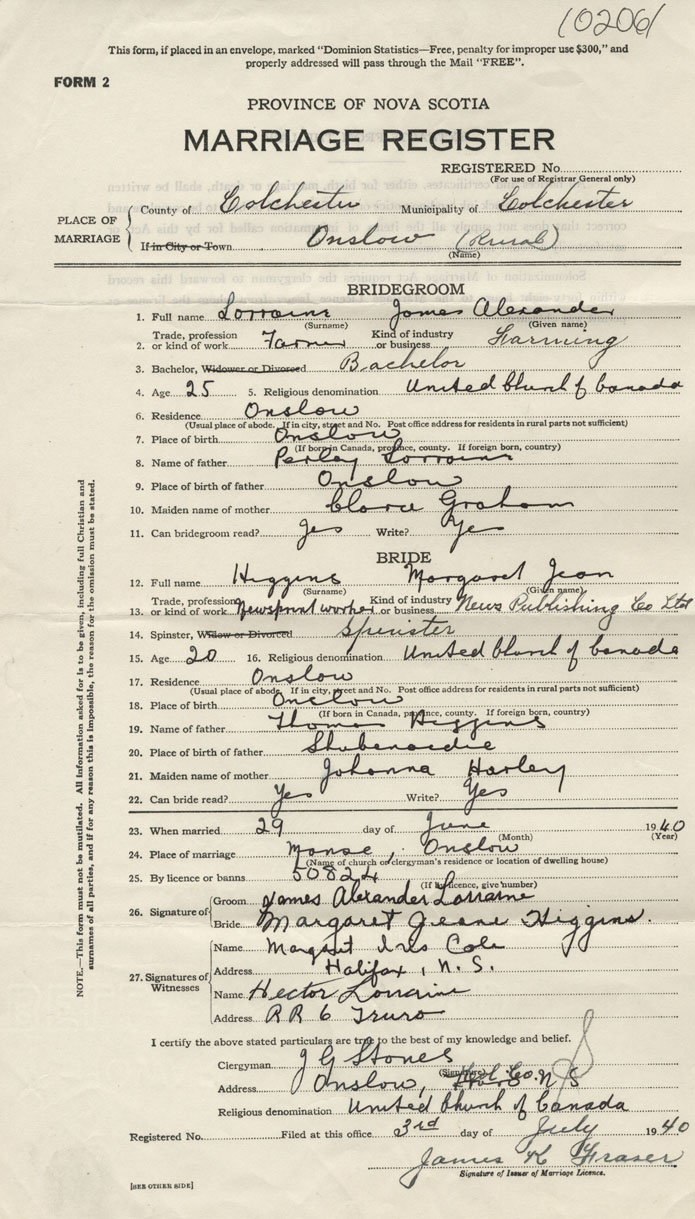 10206
This form, if placed in an envelope, marked "Dominion Statistics—Free, penalty for improper use $300," and
properly addressed will pass through the Mail "FREE".
FORM 2
PROVINCE OF NOVA SCOTIA
MARRIAGE REGISTER
REGISTERED No.
(For use of Registrar General only)
PLACE OF MARRIAGE
County of Colchester Municipality of Colchester
If in City or Town Onslow (Rural)
(Name)
BRIDEGROOM
1. Full name Lorraine James Alexander
(Surname) (Given name)
Trade, profession Kind of industry
2. or kind of work Farmer or business Farming
3. Bachelor, Widower or Divorced Bachelor
4. Age 25 5. Religious denomination United Church of Canada
6. Residence Onslow
(Usual place of abode. If in city, street and No. Post office address for residents in rural parts not sufficient)
7. Place of birth Onslow
(If born in Canada, province, county. If foreign born, country)
8. Name of father Perley Lorraine
9. Place of birth of father Onslow
10. Maiden name of mother Graham
11. Can bridegroom read? yes Write? Yes
BRIDE
12. Full name Higgins Margaret Jean
(Surname) (Given name)
Trade, profession Kind of industry
13. or kind of work Newsprint worker or business News Publishing Co Ltd
14. Spinster, Widow or Divorced Spinster
15. Age 20 16. Religious denomination United Church of Canada
17. Residence Onslow
(Usual place of abode. If in city, street and No. Post office address for residents in rural parts not sufficient)
18. Place of birth Onslow
(If born in Canada, province, county. If foreign born, country)
19. Name of father Thomas Higgins
20. Place of birth of father Shubenacadie
21. Maiden name of mother Johanna Harley
22. Can bride read? Yes Write? Yes
23. When married 29 day of June 1940
(Month) (Year)
24. Place of marriage Manse, Onslow
(Name of church or clergyman's residence or location of dwelling house)
25. By licence or banns 50824
(If by licence, give number)
26. Signature of
Groom James Alexander Lorraine
Bride Margaret Jeane Higgins.
27. Signatures of Witnesses
Name Margaret Iris Cole
Address Halifax, N.S.
Name Hector Lorraine
Address RR 6 Truro
I certify the above stated particulars are true to the best of my knowledge and belief.
Clergyman J G Stones
(Signature)
Address Onslow, Col. Co. N S
Religious denomination United Church of Canada
Registered No. Filed at this office 3rd day of July 1940
James K Fraser
Signature of Issuer of Marriage Licence.
[SEE OTHER SIDE]
NOTE.—This form must not be mutilated. All information asked for is to be given, including full Christian and
surnames of all parties, and if for any reason this is impossible, the reason for the omission must be stated.